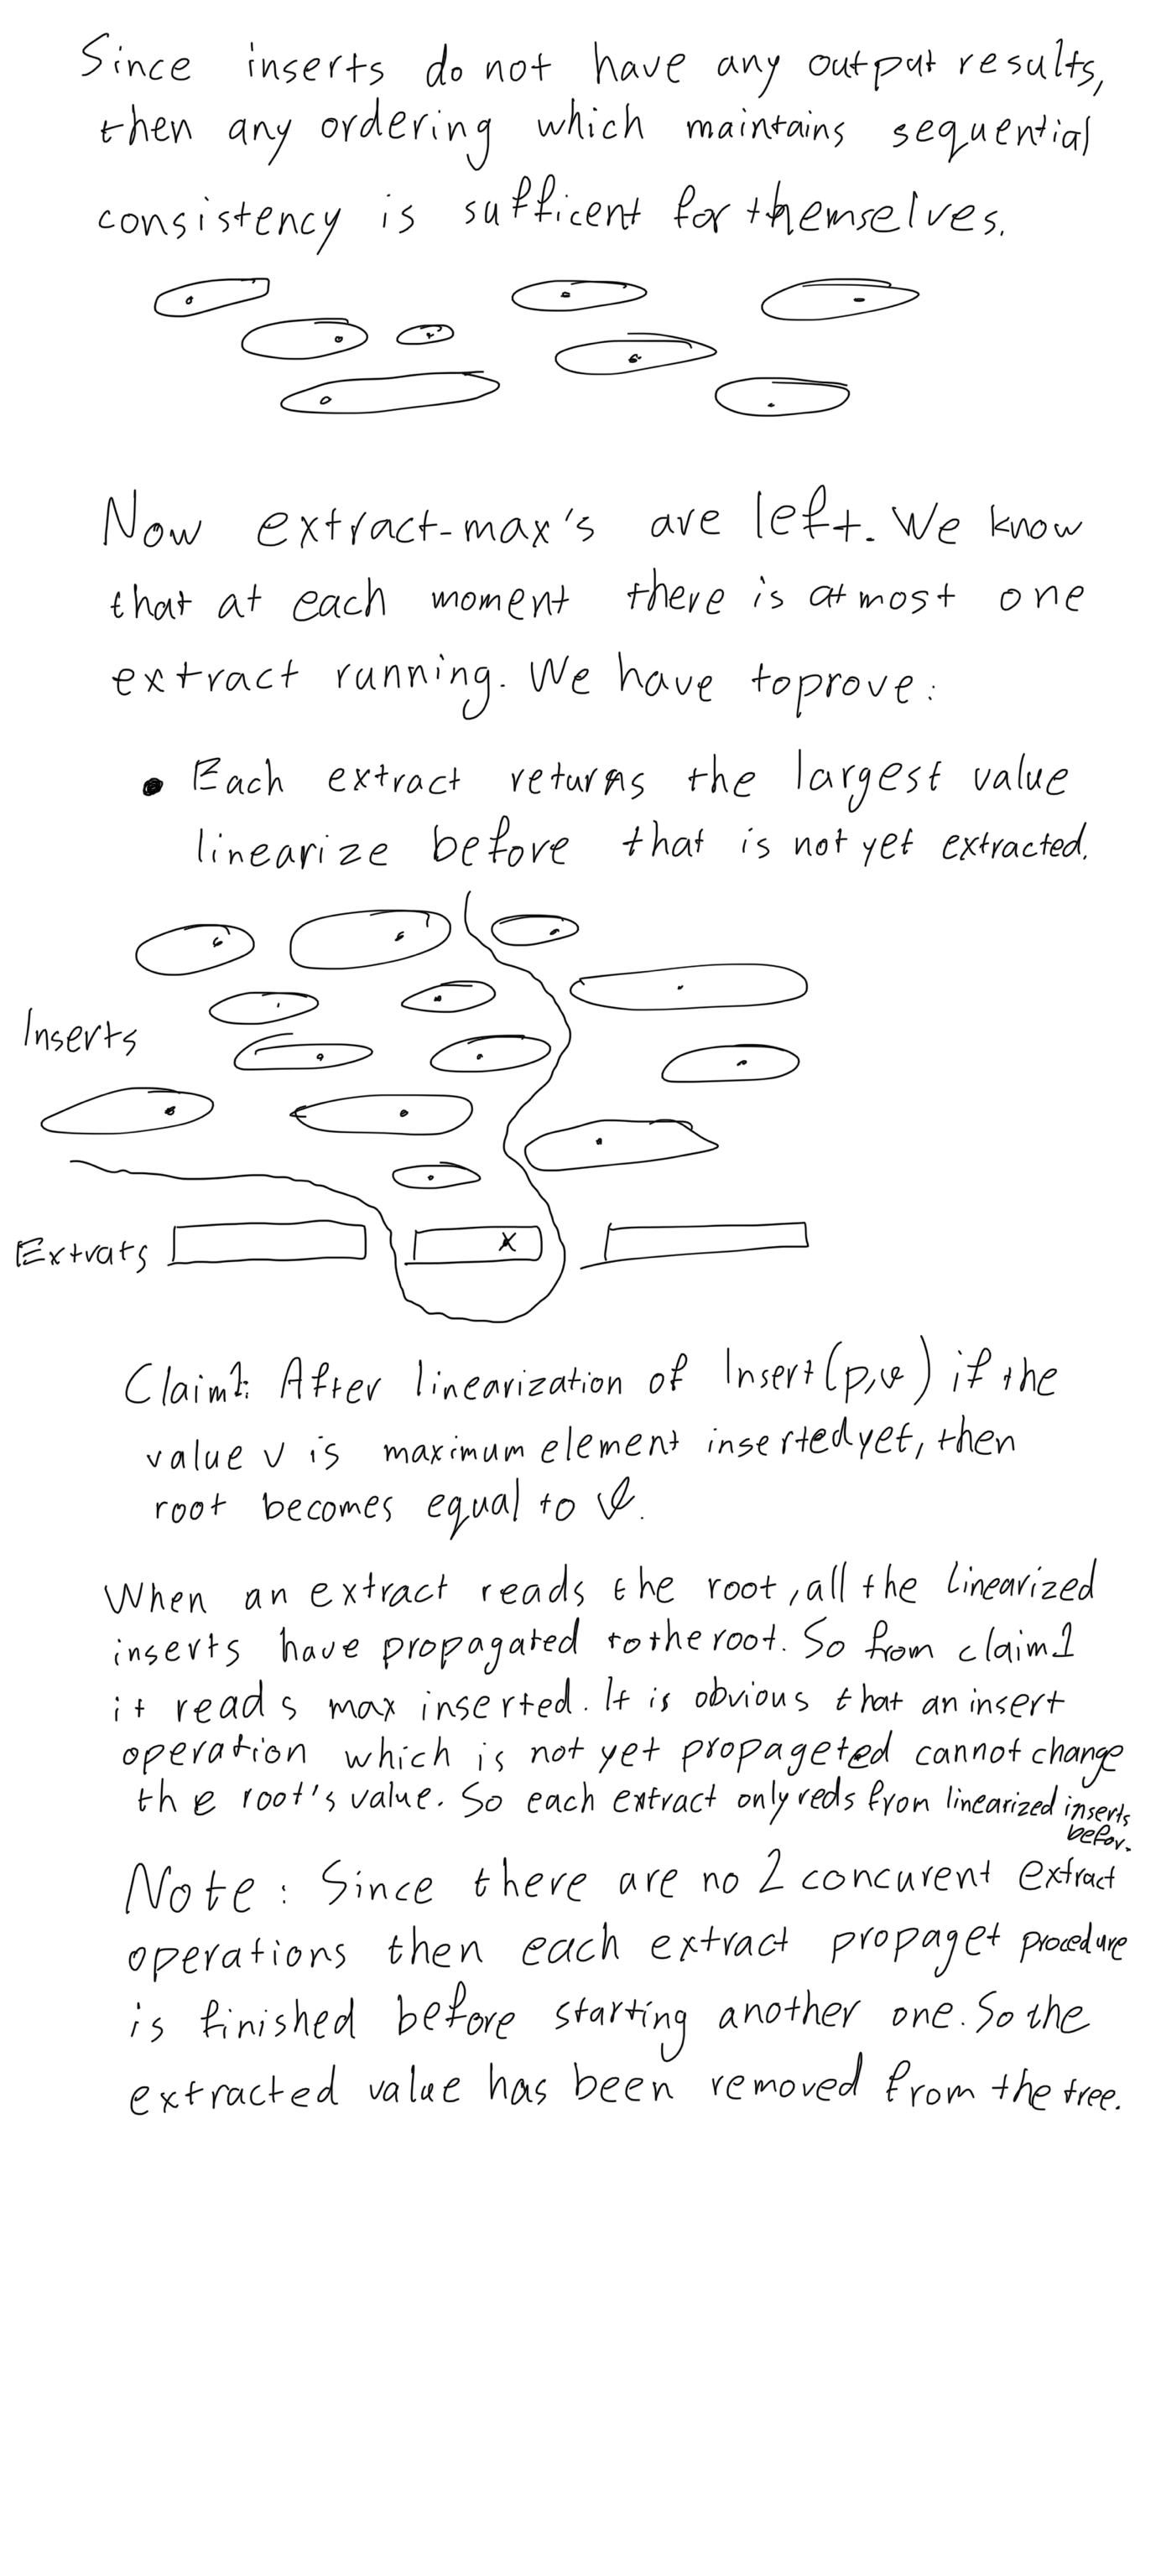 Since inserts do not have any output results,
then any ordering which maintains sequential
consistency is sufficent for themselves.
Now extract-max's are left. We know
that at each moment there is at most one
extract running. We have to prove:
• Each extract returns the largest value
linearize before that is not yet extracted.
Inserts
Extrats
x
Claim1: After linearization of Insert(p,v) if the
value v is maximum element inserted yet, then
root becomes equal to v.
When an extract reads the root, all the linearized
inserts have propagated to the root. So from claim1
it reads max inserted. It is obvious that an insert
operation which is not yet propageted cannot change
the root's value. So each extract only reds from linearized inserts
befor.
Note: Since there are no 2 concurent extract
operations then each extract propaget procedure
is finished before starting another one. So the
extracted value has been removed from the tree.